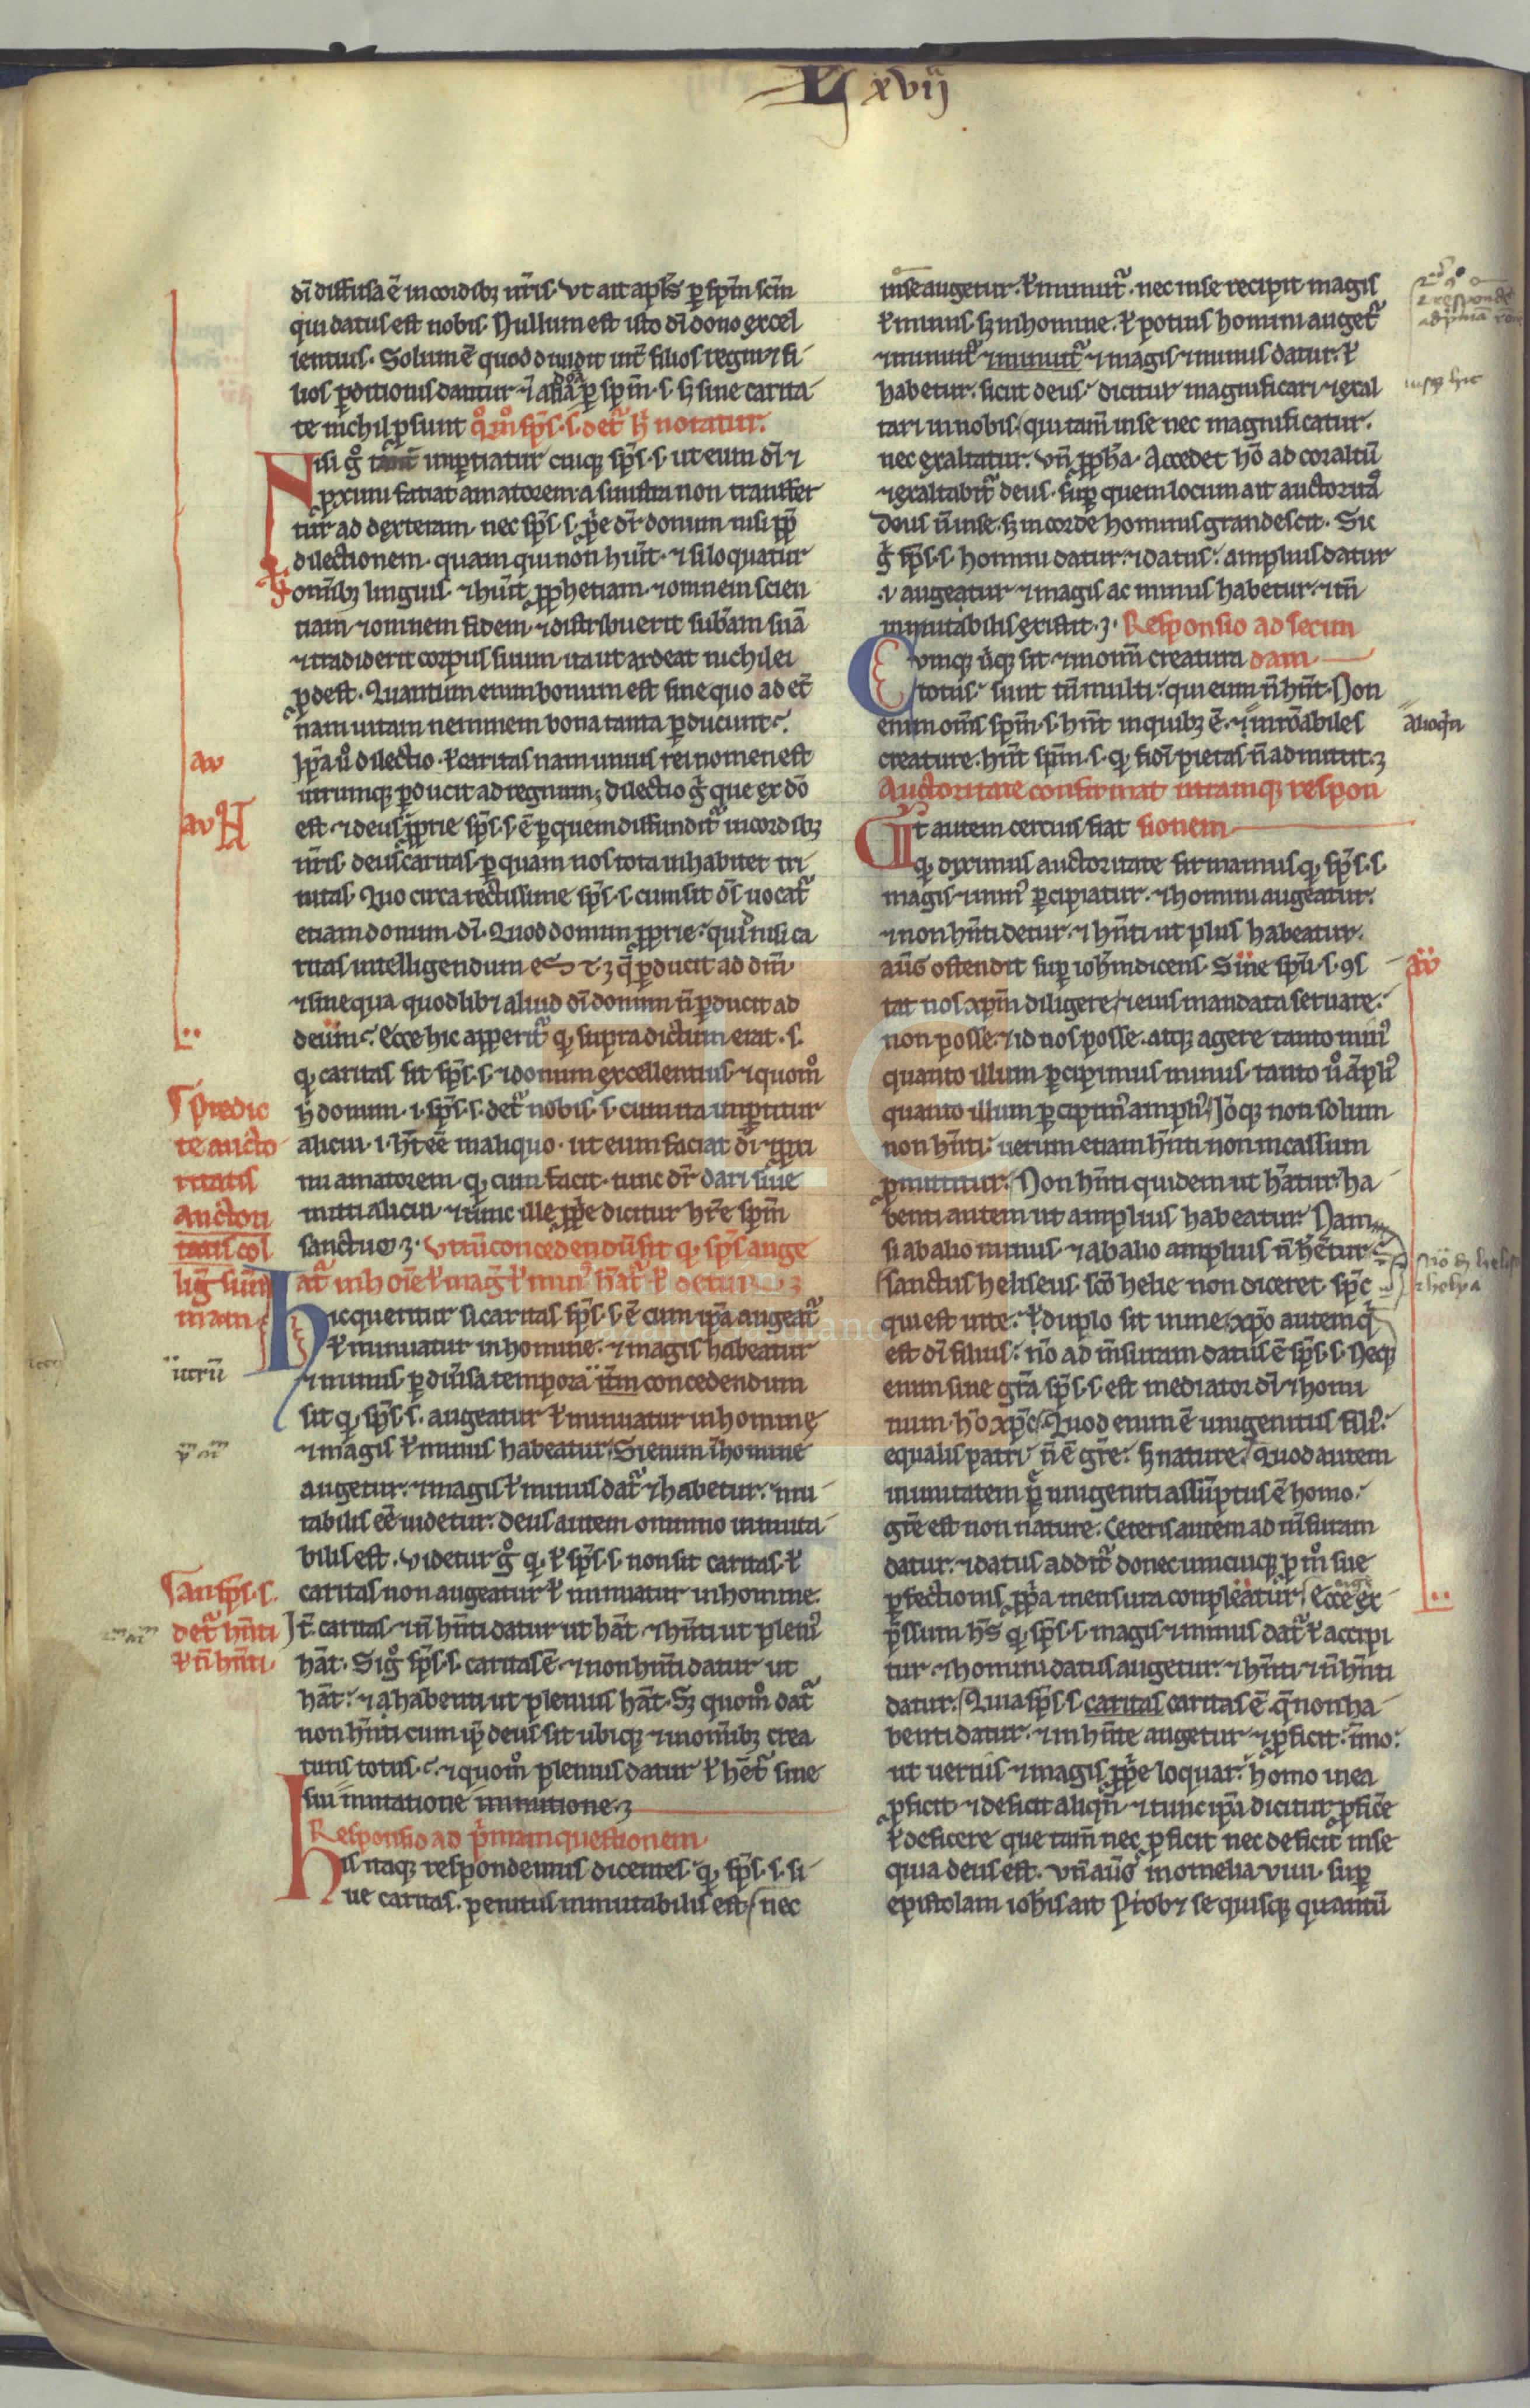 L xvij
dī diffusa ē in cordibꝫ nr̄is. Vt ait apl̄s ꝑ sp̄m sc̄m
qui datus est nobis. Nullum est isto dī dono excel
lentius. Solum ē quod diuidit int̄ filios regni ⁊ fi
lios ꝑditionis dantur ⁊ alia ꝑ sp̄m .s. sꝫ sine carita
te nichil ꝓsunt qūo sp̄s .s. det̄ ħ notatur.
Nisi gͦ inꝑtiatur cuiqꝫ sp̄s .s. ut eum dī ⁊
ꝓximi fatiat amatorem a sinistra non transfer
tur ad dexteram. nec sp̄s .s. ꝓp̄e dr̄ donum nisi ꝓp̄
dilectionem. quam qui non hūīt. ⁊ si loquatur
omībꝫ linguis. ⁊ hūīt ꝓphetiam. ⁊ omnem scien
tiam ⁊ omnem fidem. ⁊ distribuerit subām suā
⁊ tradiderit corpus suum ita ut ardeat nichil ei
ꝓdest. Quantum enim bonum est sine quo ad et̄
nam uitam neminem bona tanta ꝑducunt.
Ip̄a ū dilectio ł caritas nam unius rei nomen est
utrumqꝫ ꝑducit ad regnum; dilectio gͦ que ex dō
est ⁊ deus ꝓprie sp̄s .s. ē ꝑ quem diffundit̄ in cordibꝫ
nr̄is deus caritas ꝑ quam nos tota inhabitet tri
nitas. Quo circa rectissime sp̄s .s. cum sit ds̄ uocat̄
etiam donum dī. Quod donum ꝓprie. quid nisi ca
ritas intelligendum est. ꝫ q̄ ꝑducit ad dm̄
⁊ sine qua quodlibꝫ aliud dī donum n̄ ꝑducit ad
deum. Ecce hic apperit̄ qꝫ supra dictum erat .s.
qꝫ caritas sit sp̄s .s. ⁊ donum excellentius. ⁊ quomͦ
ħ donum .i. sp̄s .s. det̄ nobis .s. cum ita inꝑtitur
alicui .i. ht̄ eē in aliquo. ut eum faciat dī ⁊ ꝓxi
mi amatorem. qꝫ cum facit. tunc dr̄ dari siue
mitti alicui. ⁊ tunc ille ꝓp̄e dicitur hr̄e sp̄m
sanctum ꝫ. Vtrū concedendū sit qꝫ sp̄s auge
at̄ in hoīe ł mag̅ ł min᾽ hāt̄ ł detur ꝫ
Hic queritur si caritas sp̄s .s. ē cum ip̄a augeat̄
ł minuatur in homine. ⁊ magis habeatur
⁊ minus ꝑ diūsa tempora. utrū concedendum
sit qꝫ sp̄s .s. augeatur ł minuatur in homine
⁊ magis ł minus habeatur. Si enim ī homine
augetur. ⁊ magis ł minus dat̄ ⁊ habetur. mu
tabilis eē uidetur. deus autem omnino inmuta
bilis est. Videtur gͦ qꝫ ł sp̄s .s. non sit caritas. ł
caritas non augeatur ł minuatur in homine.
It̄ caritas ⁊ n̄ hn̄ti datur ut hāt. ⁊ hn̄ti ut pleni᾽
hāt. Si gͦ sp̄s .s. caritas ē ⁊ non hn̄ti datur ut
hāt. ⁊ habenti ut plenius hāt. Sꝫ quomͦ dat̄
non hn̄ti cum ip̄e deus sit ubiqꝫ ⁊ in omībꝫ crea
turis totus. ⁊ quomͦ plenius datur ł het̄ sine
sui mutatione
Responsio ad p̄mam questionem.
His itaqꝫ respondemus dicentes qꝫ sp̄s .s. si
ue caritas. penitus inmutabilis est. nec
in se augetur. ł minuit̄. nec in se recipit magis
ł minus. sꝫ in homine. ł potius homini auget̄
⁊ minuit̄ ⁊ magis ⁊ minus datur. ł
habetur. sicut deus dicitur magnificari ⁊ exal
tari in nobis. qui tam̄ in se nec magnificatur.
nec exaltatur. Vn̄ ꝓpħa. Accedet hō ad cor altū
⁊ exaltabit̄ deus. sup quem locum ait auctoritas
deus n̄ in se. sꝫ in corde hominis grandescit. Sic
gͦ sp̄s .s. homini datur. ⁊ datus. amplius datur
.i. augeatur ⁊ magis ac minus habetur. ⁊ tn̄
inmutabilis existit .ꝫ. Responsio ad secun
Cumqꝫ ubiqꝫ sit ⁊ in omī creatura dam
totus. sunt tn̄ multi qui eum n̄ hn̄t. Non
enim om̄s sp̄m .s. hn̄t in quibꝫ ē. ⁊ irrōabiles
creature. hn̄t sp̄m .s. qꝫ fidei pietas n̄ admittit. ꝫ
Auctoritate confirmat utramqꝫ respon
Vt autem certius fiat sionem
qꝫ diximus auctoritate firmamus qꝫ sp̄s .s.
magis ⁊ min᾽ ꝑcipiatur. ⁊ homini augeatur.
⁊ non hn̄ti detur. ⁊ hn̄ti ut plus habeatur.
aug̅ ostendit sup ioh̄m dicens. Sine sp̄u .s. ꝯs
tat nos xp̄m diligere. ⁊ eius mandata seruare.
non posse. ⁊ id nos posse. atqꝫ agere tanto min᾽
quanto illum ꝑcipimus minus. tanto ū āpli᾽
quanto illum ꝑcipim᾽ ampli᾽. Ideoqꝫ non solum
non hn̄ti. uerum etiam hn̄ti non incassum
ꝓmittitur. Non hn̄ti quidem ut hātur. ha
benti autem ut amplius habeatur. Nam
si ab alio minus. ⁊ ab alio amplius n̄ het̄ur
sanctus heliseus. sc̄o helie non diceret. sp̄c
qui est in te. ł duplo sit in me. xp̄o autem qͥ
est dī filius. nō ad mn̄suram datus ē sp̄s .s. Neqꝫ
enim sine gr̄a sp̄s .s. est mediator dī ⁊ homi
num. hō xp̄c. Quod enim ē unigenitus fili᾽.
equalis patri. n̄ ē gr̄e. sꝫ nature. Quod autem
in unitatem ꝑ unigeniti assūptus ē homo.
gr̄e est non nature. Ceteris autem ad mn̄suram
datur. ⁊ datus addit̄ donec unicuiqꝫ ꝓ mͦ sue
ꝑfectionis ꝓp̄a mensura conpleatur. Ecce ex
p̄ssum hēs qꝫ sp̄s .s. magis ⁊ minus dat̄ ł accipi
tur. ⁊ homini datus augetur. ⁊ hn̄ti ⁊ n̄ hn̄ti
datur. Quia sp̄s .s. caritas caritas ē q̄ non ha
benti datur. ⁊ in hn̄te augetur ⁊ ꝓficit. īmo.
ut uerius ⁊ magis ꝓp̄e loquar. homo in ea
ꝓficit ⁊ deficit aliqn̄. ⁊ tunc ip̄a dicitur ꝓfic̄e
ł deficere que tam̄ nec ꝓficit nec deficit in se
quia deus est. Vn̄ aug̅ in omelia viii. sup
epistolam ioh̄is ait. Probꝫ se quisqꝫ quantū
au
au
predic
te aucto
ritatis
auctori
tatis col
lig̅ sum̄
mam
utrū
an sp̄s .s.
det̄ hn̄ti
ł n̄ hn̄ti
alioqn̄
au